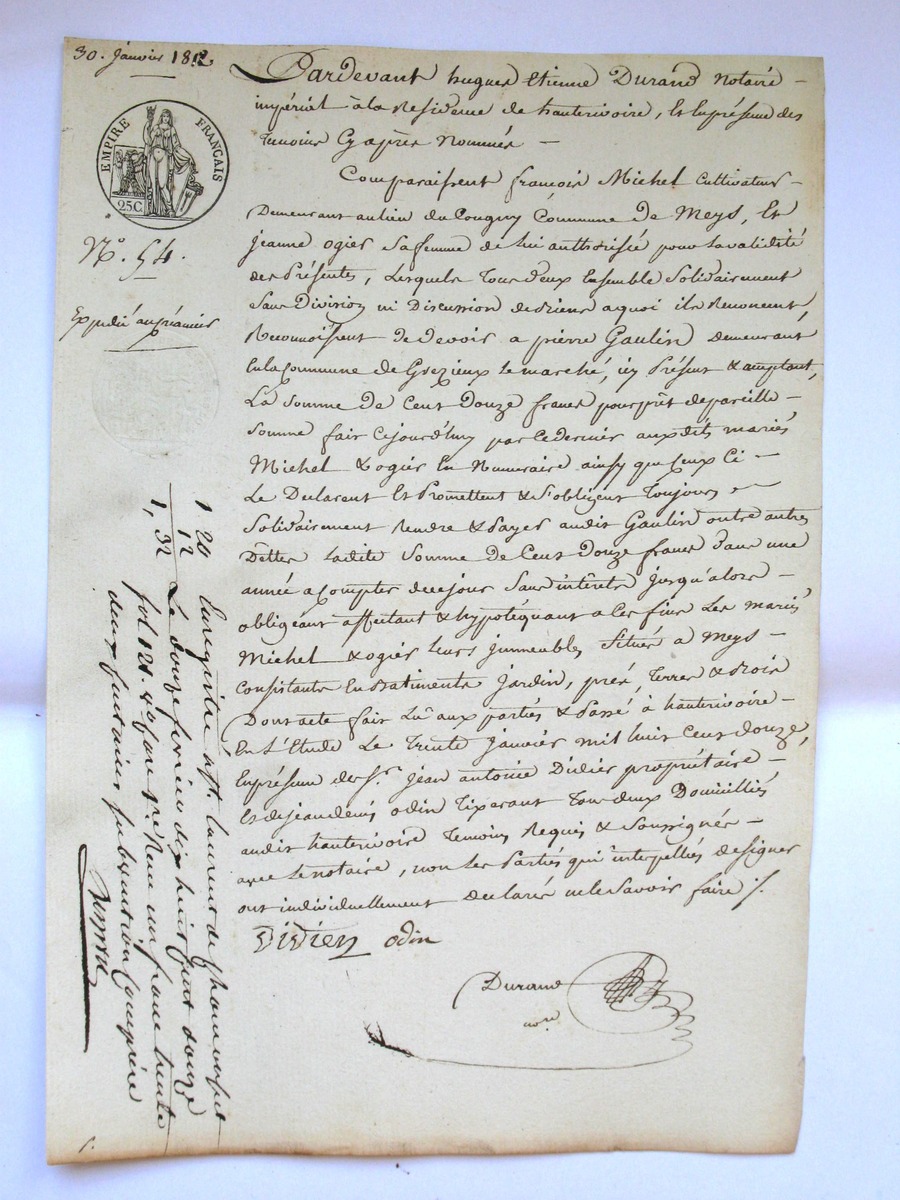 30. janvier 1812
EMPIRE FRANÇAIS
25C.
N.º 54.
Expédié au préancier
Pardevant hugues Etienne Durand Notaire
impérial à la Residence de hauterivoire, Et En présence des
temoins Cyaprès Nommés
Comparaissent françois Michel Cultivateur
Demeurant au lieu du Cougny Commune de Meys, Et
jeanne ogier sa femme de lui authorisée pour la validité
des Présentes, Lesquels Tous deux Ensemble Solidairement
Sans Division ni Discussion de biens a quoi ils Renoncent
Reconnoissent de devoir a pierre Gaulin demeurant
En la Commune de Grezieux le marché, icy Présent & acceptant,
La Somme de Cent Douze francs pour prêt de pareille
Somme fait Cejourd'huy par ce dernier aux dits mariés
Michel & ogier En Numeraire ainsy que Ceux Ci
Le Declarent Et Promettent & S'obligent Toujours
Solidairement Rendre & Payer audit Gaulin outre autres
Dêttes ladite Somme de Cent Douze francs dans une
année a Compter de ce jour Sans intérêts jusqu'alors
obligeant affectant & hypotéquant a Ces fins Les mariés
Michel & ogier leurs immeubles Situés a Meys
Consistants En Batiments jardin, prés, Terres & Bois
Dont acte fait Lû aux parties & Passé à hauterivoire
En L'Etude Le Trente janvier mil huit Cent douze,
En présence de S.r jean antoine Didier propriétaire
Et de jean denis odin Tixerant Tous deux Domiciliés
audit hauterivoire Temoins Requis & Soussignés
avec le notaire, non Les Parties qui interpellés de signer
ont individuellement declarés ne le Savoir faire ./.
Didier odin
Durand
no.re
1 20
12
1, 32
Enregistré à St. laurent de chamousset
Le douze fevrier dix huit cent douze
fol 121. Reçu un franc trente
deux centimes subvention comprise